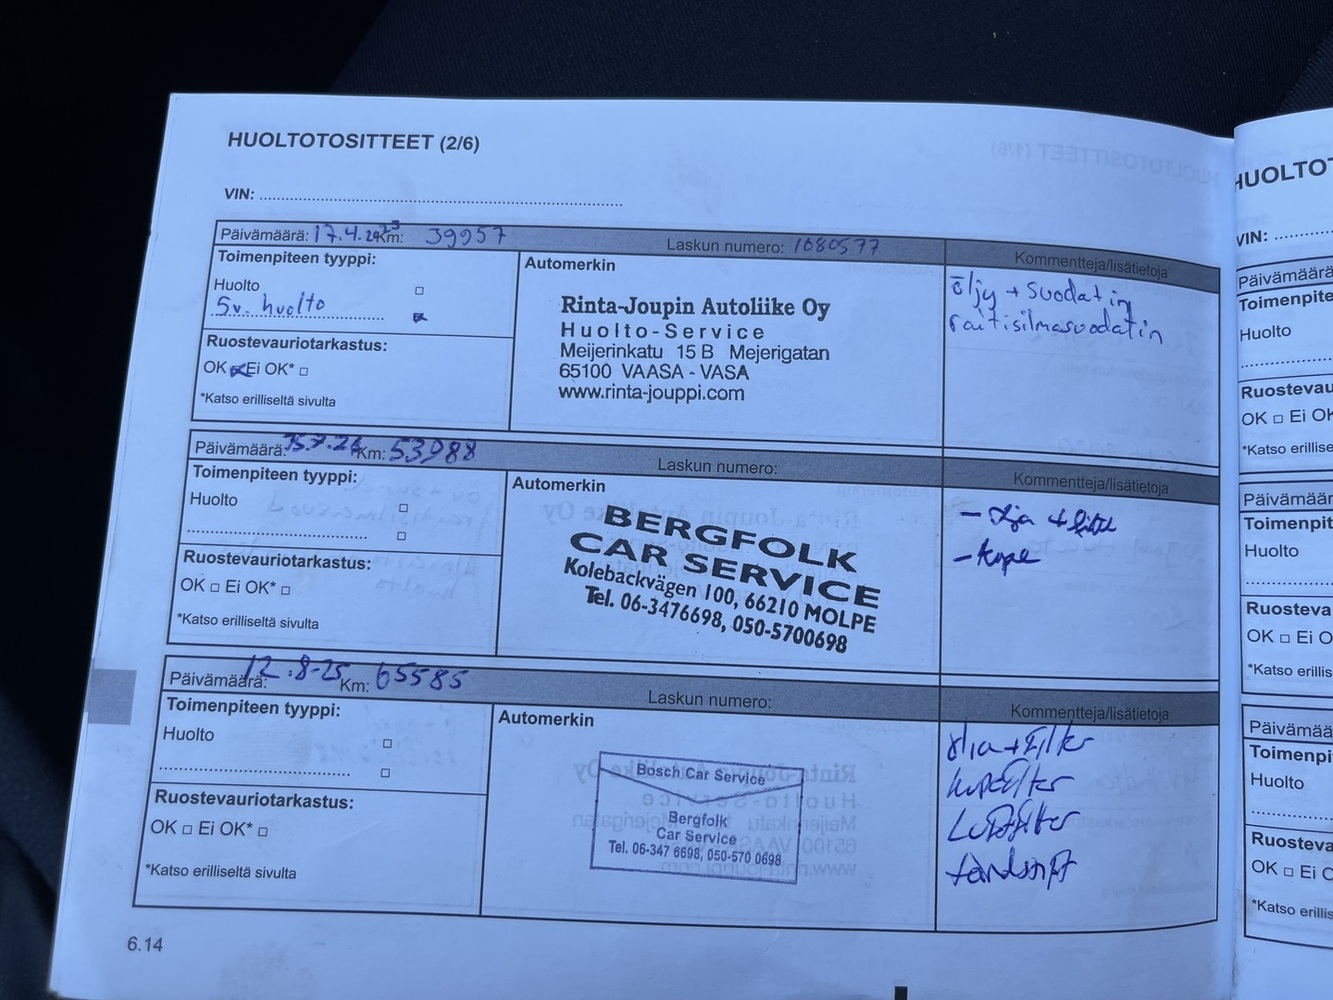 HUOLTOTOSITTEET (2/6)
VIN:
Päivämäärä: 17.4.2023 Km: 39957 Laskun numero: 1080577 Kommentteja/lisätietoja
Toimenpiteen tyyppi:
Huolto
5v. huolto
Ruostevauriotarkastus:
OK Ei OK*
*Katso erilliseltä sivulta
Automerkin
Rinta-Joupin Autoliike Oy
Huolto-Service
Meijerinkatu 15 B Mejerigatan
65100 VAASA - VASA
www.rinta-jouppi.com
öljy + suodatin
raitisilmasuodatin
Päivämäärä: 15.7.24 Km: 53988 Laskun numero: Kommentteja/lisätietoja
Toimenpiteen tyyppi:
Huolto
Ruostevauriotarkastus:
OK Ei OK*
*Katso erilliseltä sivulta
Automerkin
BERGFOLK
CAR SERVICE
Kolebackvägen 100, 66210 MOLPE
Tel. 06-3476698, 050-5700698
- olja + filter
- kupe
Päivämäärä: 12.8-25 Km: 65585 Laskun numero: Kommentteja/lisätietoja
Toimenpiteen tyyppi:
Huolto
Ruostevauriotarkastus:
OK Ei OK*
*Katso erilliseltä sivulta
Automerkin
Bosch Car Service
Bergfolk
Car Service
Tel. 06-347 6698, 050-570 0698
olja + filter
kupefilter
Luftfilter
tändstift
6.14
VIN:
Päivämäärä
Huolto
OK Ei OK
*Katso erillise
Huolto
OK Ei O
*Katso erillis
Päivämää
Huolto
OK Ei
*Katso erillis